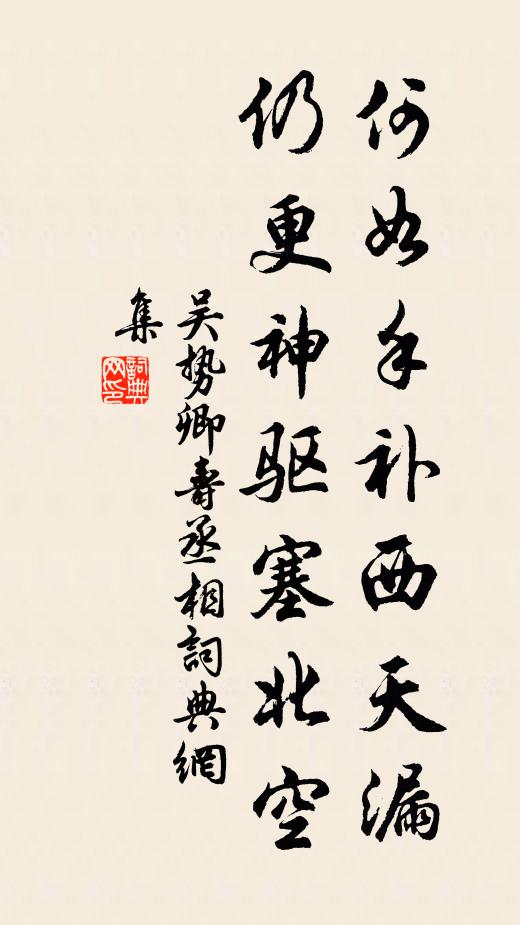 何如手补西天漏
仍更神驱塞北空
吴势卿寿丞相詞典網
集
詞典
网印